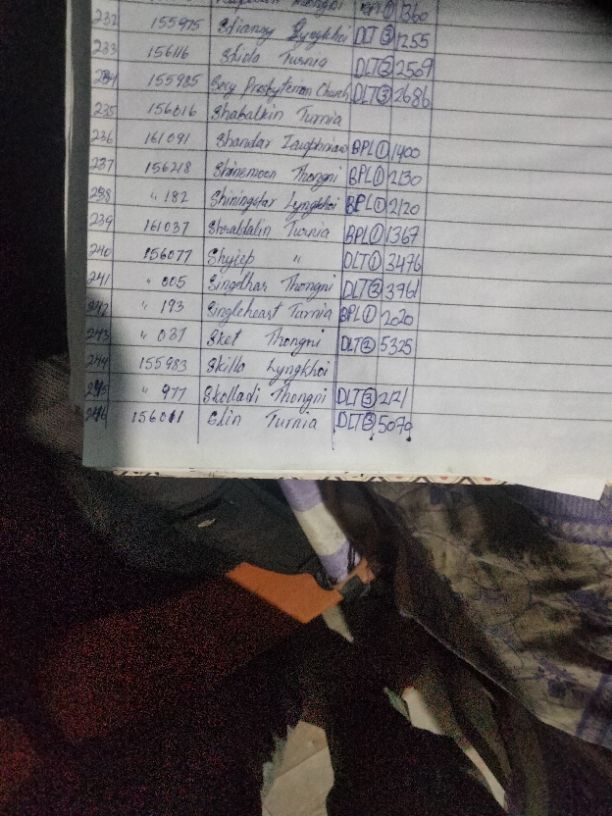 Thongni BPL ① 1360
232 155975 Shiangy Lyngkhoi DLT ③ 1255
233 156116 Shida Turnia DLT ② 2569
234 155985 Presbyterian Church DLT ③ 2686
235 156016 Shabalkin Turnia
236 161091 Shandar BPL ① 1400
237 156218 Shinemoon Thongni BPL ① 2130
238 " 182 Shiningstar Lyngkhoi BPL ① 2120
239 161037 Turnia BPL ① 1367
240 156077 Shyiep " DLT ① 3476
241 " 005 Singdhar Thongni DLT ② 3961
242 " 193 Singleheart Turnia BPL ① 2020
243 " 031 Sket Thongni DLT ② 5325
244 155983 Skilla Lyngkhoi
245 " 977 Skolladi Thongni DLT ③ 2121
246 156011 Slin Turnia DLT ③ 5079